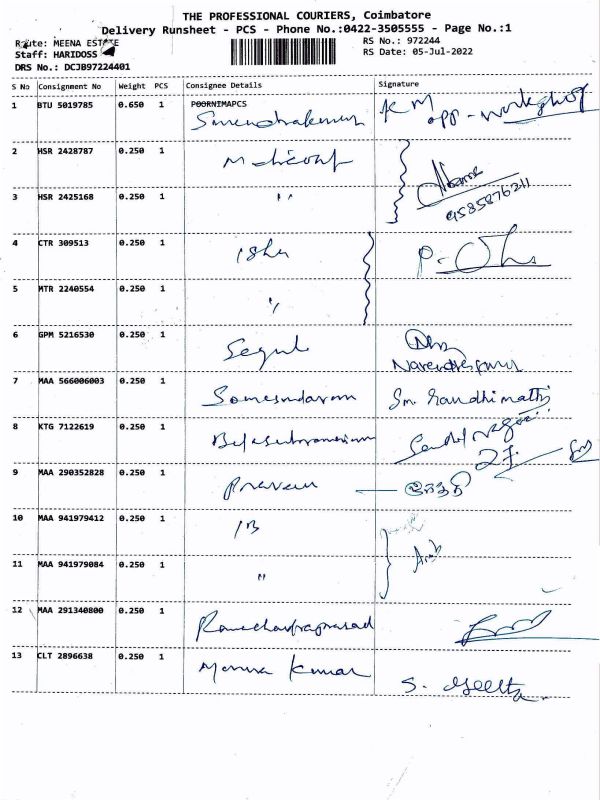 THE PROFESSIONAL COURIERS, Coimbatore
Delivery Runsheet - PCS - Phone No.:0422-3505555 - Page No.:1
Route: MEENA ESTATE
RS No.: 972244
Staff: HARIDOSS
RS Date: 05-Jul-2022
DRS No.: DCJB97224401
S No Consignment No Weight PCS Consignee Details Signature
1 BTU 5019785 0.650 1 POORNIMAPCS
Surendrakumar KM opp - workshop
2 HSR 2428787 0.250 1
3 HSR 2425168 0.250 1 "
9585876211
4 CTR 309513 0.250 1 Ishu P.
5 MTR 2240554 0.250 1 "
6 GPM 5216530 0.250 1
7 MAA 566006003 0.250 1 Somesundaram Sm. Gandhimathi
8 KTG 7122619 0.250 1 Balasubramanium
9 MAA 290352828 0.250 1 Praveen
10 MAA 941979412 0.250 1 IB
11 MAA 941979084 0.250 1 "
12 MAA 291340800 0.250 1
13 CLT 2896638 0.250 1 Kumar
S. Geetha